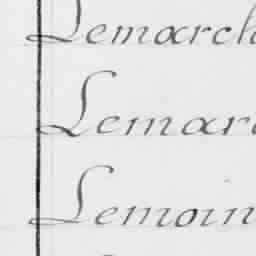 Lemarch
Lemar
Lemoin